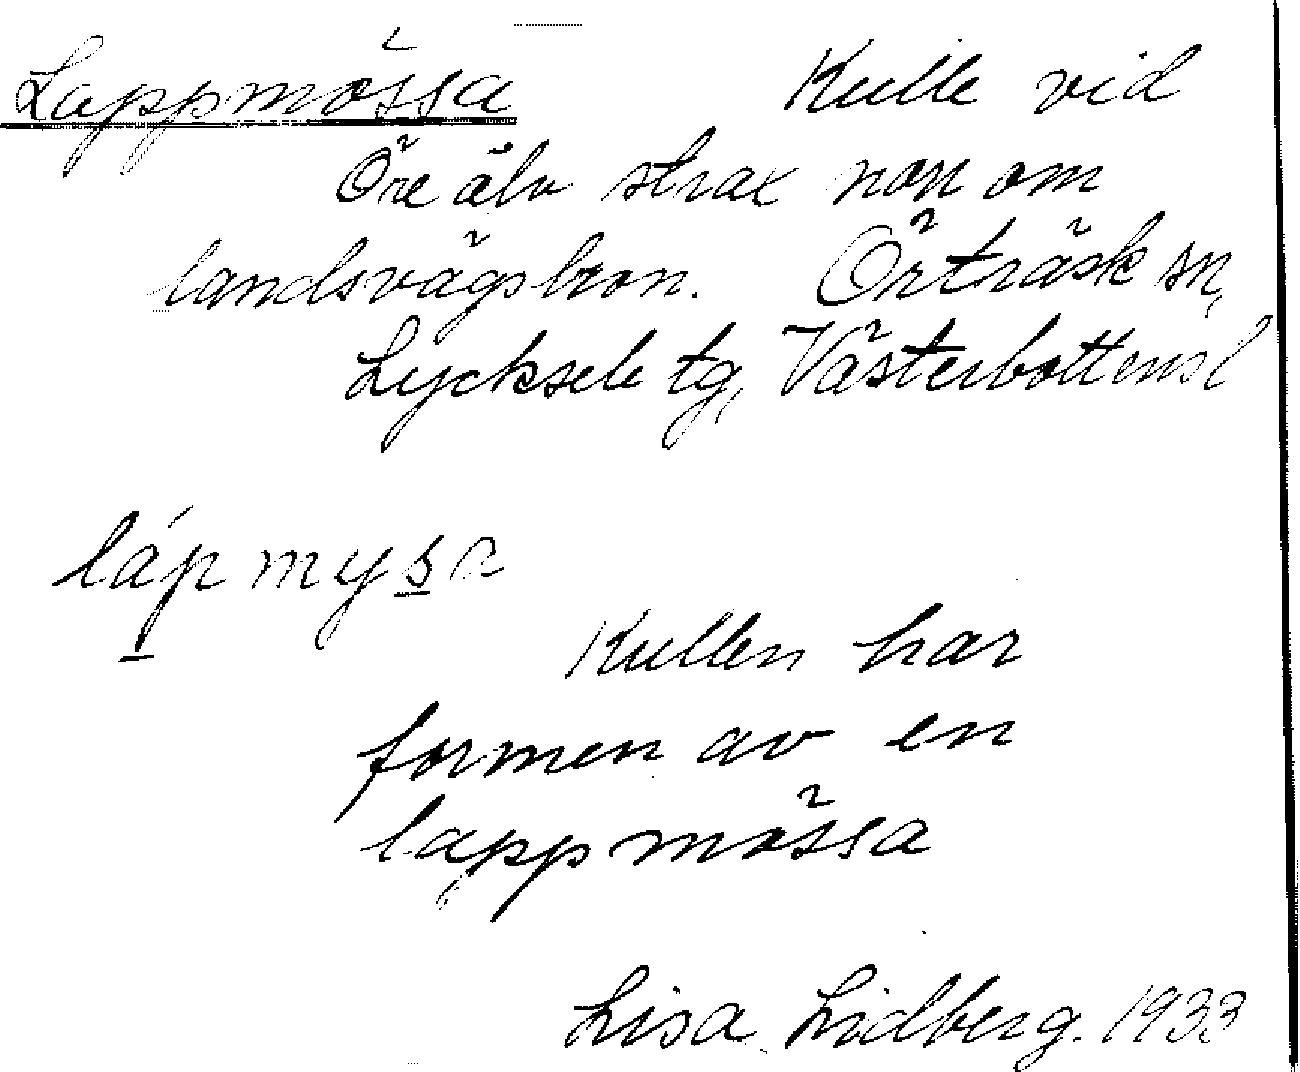 Lappmössa Kulle vid
Öre älv strax norr om
landsvägsbron. Örträsk sn,
Lycksele tg, Västerbottens l
láp mysa
Kullen har
formen av en
lappmössa
Lisa Lidberg. 1933